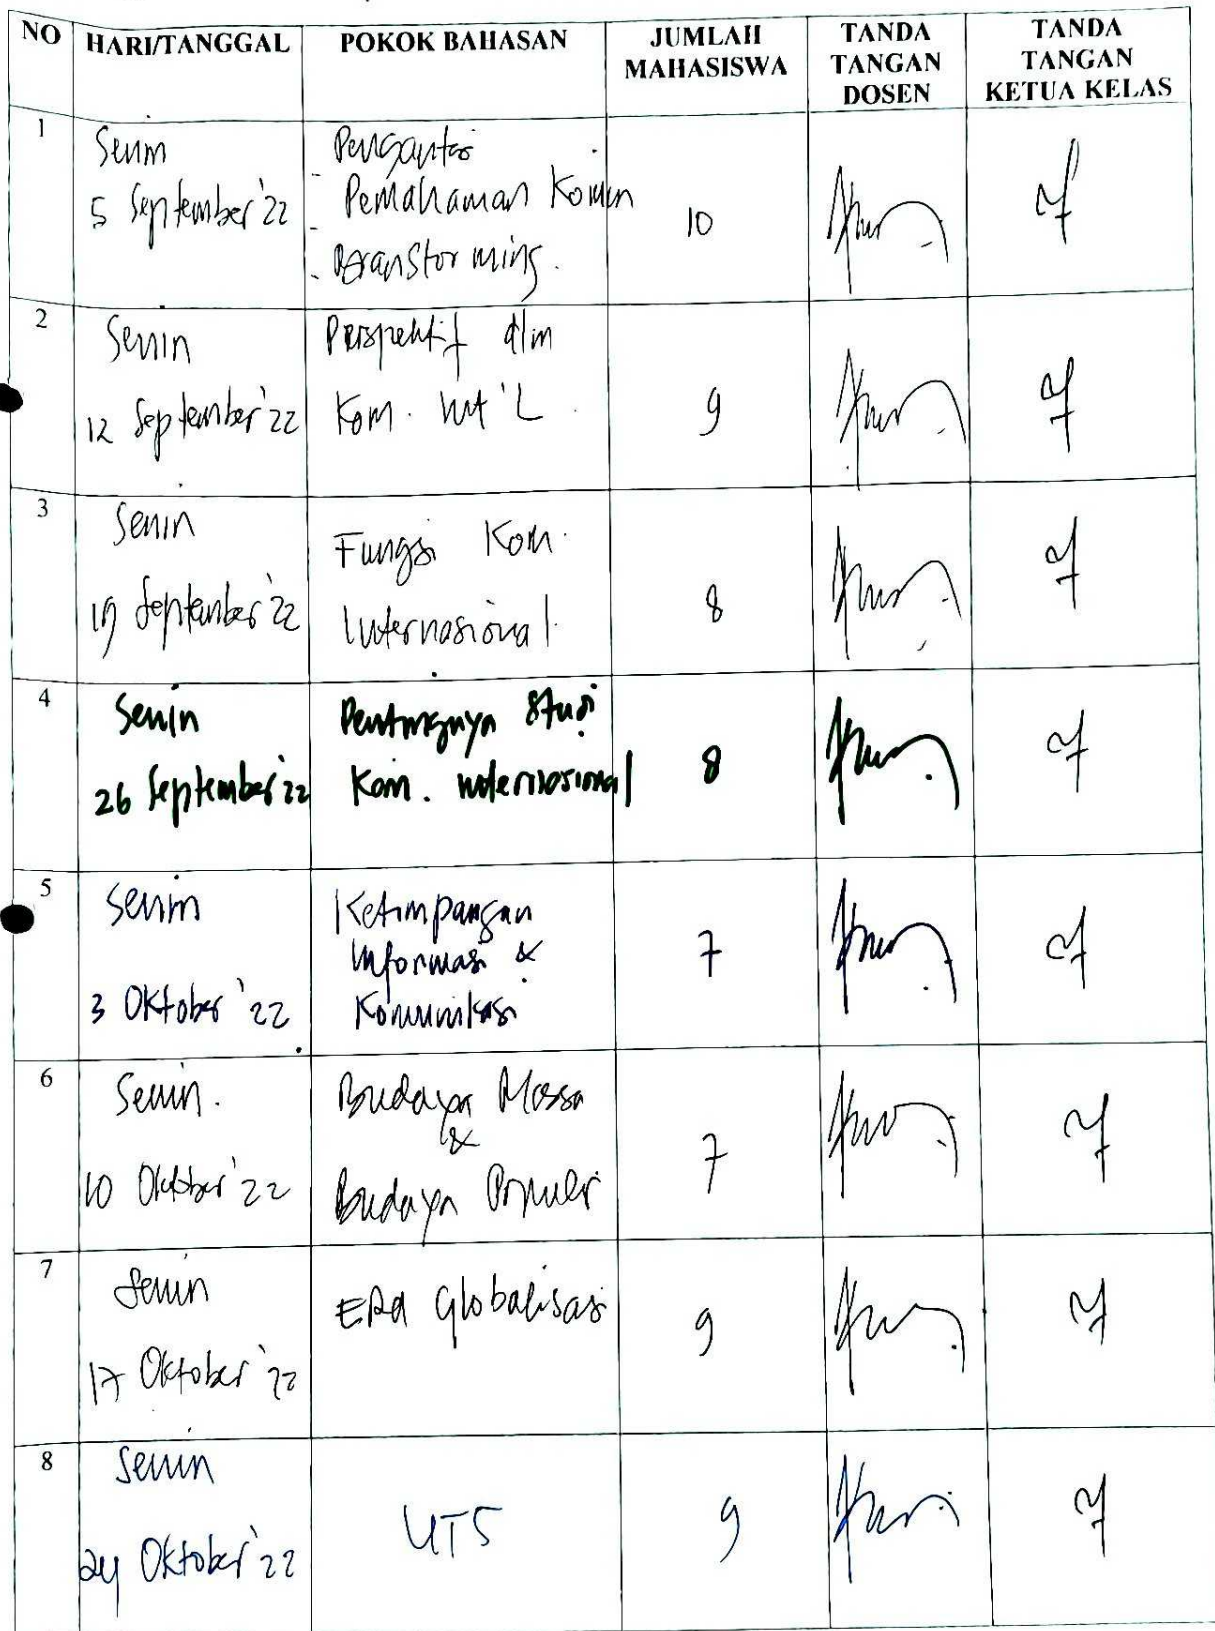 NO HARI/TANGGAL POKOK BAHASAN JUMLAH MAHASISWA TANDA TANGAN DOSEN TANDA TANGAN KETUA KELAS
1 Senin
5 September '22
Pengantar
- Pemahaman Komin
- Branstorming.
10
2 Senin
12 September '22
Perspektif dlm
Kom. Int'L
9
3 Senin
19 September '22
Fungsi Kom.
Internasional
8
4 Senin
26 September '22
Pentingnya Studi
Kom. Internasional
8
5 Senin
3 Oktober '22
Ketimpangan
Informasi &
Komunikasi
7
6 Senin.
10 Oktober '22
Budaya Massa
&
Budaya Populer
7
7 Senin
17 Oktober '22
ERA Globalisasi
9
8 Senin
24 Oktober '22
UTS
9